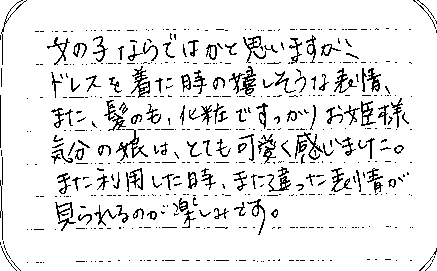 女の子ならではかと思いますが、
ドレスを着た時の嬉しそうな表情、
また、髪のも、化粧ですっかりお姫様
気分の娘は、とても可愛く感じました。
また利用した時、また違った表情が
見られるのが楽しみです。